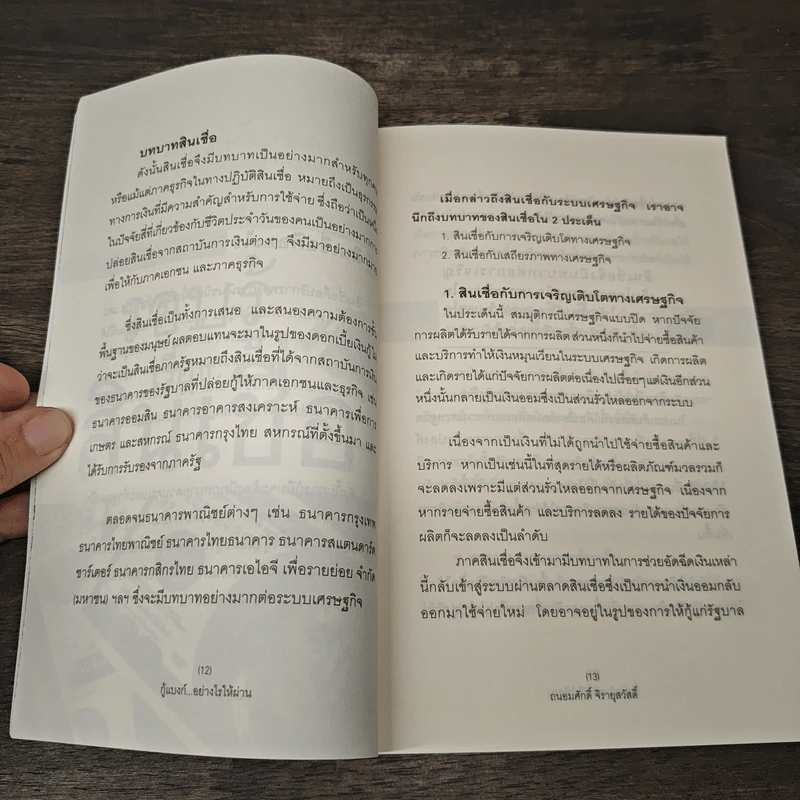 บทบาทสินเชื่อ
ดังนั้นสินเชื่อจึงมีบทบาทเป็นอย่างมากสำหรับทุกคน
หรือแม้แต่ภาคธุรกิจในทางปฏิบัติสินเชื่อ หมายถึงเป็นธุรกรรม
ทางการเงินที่มีความสำคัญสำหรับการใช้จ่าย ซึ่งถือว่าเป็นหนึ่ง
ในปัจจัยสี่ที่เกี่ยวข้องกับชีวิตประจำวันของคนเป็นอย่างมากการ
ปล่อยสินเชื่อจากสถาบันการเงินต่างๆ จึงมีมาอย่างมากมาย
เพื่อให้กับภาคเอกชน และภาคธุรกิจ
ซึ่งสินเชื่อเป็นทั้งการเสนอ และสนองความต้องการขั้น
พื้นฐานของมนุษย์ ผลตอบแทนจะมาในรูปของดอกเบี้ยเงินกู้ไม่
ว่าจะเป็นสินเชื่อภาครัฐหมายถึงสินเชื่อที่ได้จากสถาบันการเงิน
ของธนาคารของรัฐบาลที่ปล่อยกู้ให้ภาคเอกชนและธุรกิจ เช่น
ธนาคารออมสิน ธนาคารอาคารสงเคราะห์ ธนาคารเพื่อการ
เกษตร และสหกรณ์ ธนาคารกรุงไทย สหกรณ์ที่ตั้งขึ้นมา และ
ได้รับการรับรองจากภาครัฐ
ตลอดจนธนาคารพาณิชย์ต่างๆ เช่น ธนาคารกรุงเทพ
ธนาคารไทยพาณิชย์ ธนาคารไทยธนาคาร ธนาคารสแตนดาร์ด
ชาร์เตอร์ ธนาคารกสิกรไทย ธนาคารเอไอจี เพื่อรายย่อย จำกัด
(มหาชน) ฯลฯ ซึ่งจะมีบทบาทอย่างมากต่อระบบเศรษฐกิจ
(12)
กู้แบงก์...อย่างไรให้ผ่าน
เมื่อกล่าวถึงสินเชื่อกับระบบเศรษฐกิจ เราอาจ
นึกถึงบทบาทของสินเชื่อใน 2 ประเด็น
1. สินเชื่อกับการเจริญเติบโตทางเศรษฐกิจ
2. สินเชื่อกับเสถียรภาพทางเศรษฐกิจ
1. สินเชื่อกับการเจริญเติบโตทางเศรษฐกิจ
ในประเด็นนี้ สมมุติกรณีเศรษฐกิจแบบปิด หากปัจจัย
การผลิตได้รับรายได้จากการผลิต ส่วนหนึ่งก็นำไปจ่ายซื้อสินค้า
และบริการทำให้เงินหมุนเวียนในระบบเศรษฐกิจ เกิดการผลิต
และเกิดรายได้แก่ปัจจัยการผลิตต่อเนื่องไปเรื่อยๆ แต่เงินอีกส่วน
หนึ่งนั้นกลายเป็นเงินออมซึ่งเป็นส่วนรั่วไหลออกจากระบบ
เนื่องจากเป็นเงินที่ไม่ได้ถูกนำไปใช้จ่ายซื้อสินค้าและ
บริการ หากเป็นเช่นนี้ในที่สุดรายได้หรือผลิตภัณฑ์มวลรวมก็
จะลดลงเพราะมีแต่ส่วนรั่วไหลออกจากเศรษฐกิจ เนื่องจาก
หากรายจ่ายซื้อสินค้า และบริการลดลง รายได้ของปัจจัยการ
ผลิตก็จะลดลงเป็นลำดับ
ภาคสินเชื่อจึงเข้ามามีบทบาทในการช่วยอัดฉีดเงินเหล่า
นี้กลับเข้าสู่ระบบผ่านตลาดสินเชื่อซึ่งเป็นการนำเงินออมกลับ
ออกมาใช้จ่ายใหม่ โดยอาจอยู่ในรูปของการให้กู้แก่รัฐบาล
(13)
ถนอมศักดิ์ จิรายุสวัสดิ์